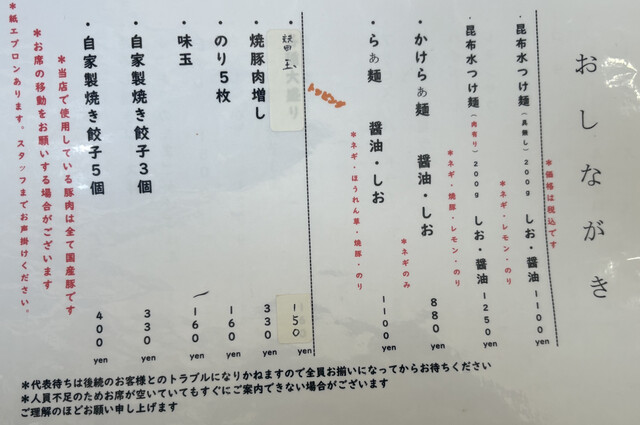 おしながき
＊価格は税込です
・昆布水つけ麺（具無し）200g しお・醤油 1100 yen
＊ネギ・レモン・のり
・昆布水つけ麺（肉有り）200g しお・醤油 1250 yen
＊ネギ・焼豚・レモン・のり
・かけらぁ麺 醤油・しお 880 yen
＊ネギのみ
・らぁ麺 醤油・しお 1100 yen
＊ネギ・ほうれん草・焼豚・のり
トッピング
替玉 150 yen
・焼豚肉増し 330 yen
・のり5枚 160 yen
・味玉 160 yen
・自家製焼き餃子3個 330 yen
・自家製焼き餃子5個 400 yen
＊当店で使用している豚肉は全て国産豚です
＊お席の移動をお願いする場合がございます
＊紙エプロンあります。スタッフまでお声掛けください。
＊代表待ちは後続のお客様とのトラブルになりかねますので全員お揃いになってからお待ちください
＊人員不足のためお席が空いていてもすぐにご案内できない場合がございます
ご理解のほどお願い申し上げます